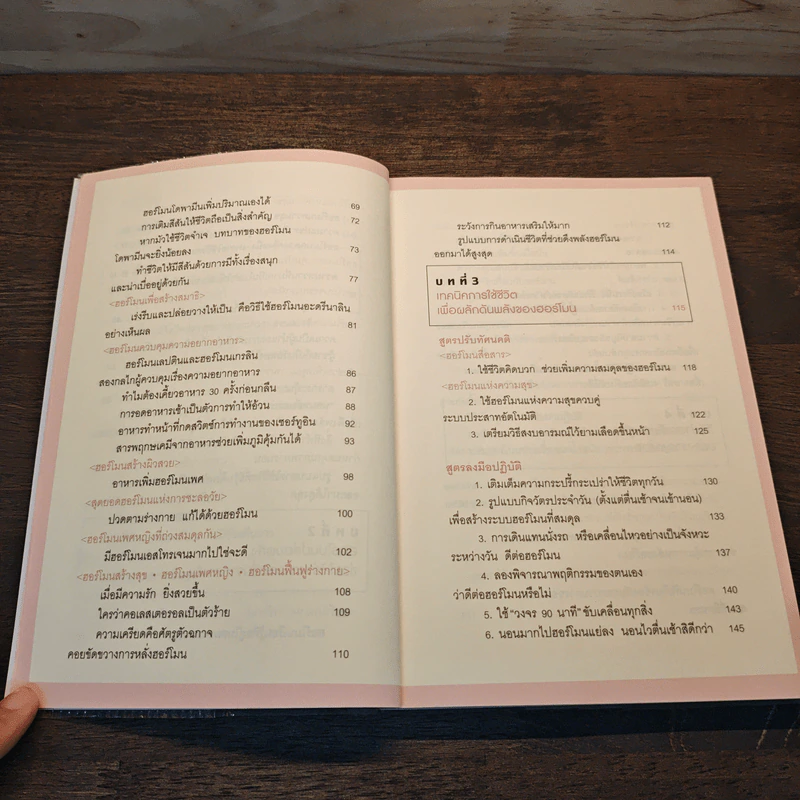 ฮอร์โมนโดพามีนเพิ่มปริมาณเองได้ 69
การเติมสีสันให้ชีวิตถือเป็นสิ่งสำคัญ 72
หากมัวใช้ชีวิตจำเจ บทบาทของฮอร์โมน
โดพามีนจะยิ่งน้อยลง 73
ทำชีวิตให้มีสีสันด้วยการมีทั้งเรื่องสนุก
และน่าเบื่ออยู่ด้วยกัน 77
<ฮอร์โมนเพื่อสร้างสมาธิ>
เร่งรีบและปล่อยวางให้เป็น คือวิธีใช้ฮอร์โมนอะดรีนาลิน
อย่างเห็นผล 81
<ฮอร์โมนควบคุมความอยากอาหาร>
ฮอร์โมนเลปตินและฮอร์โมนเกรลิน
สองกลไกผู้ควบคุมเรื่องความอยากอาหาร 86
ทำไมต้องเคี้ยวอาหาร 30 ครั้งก่อนกลืน 87
การอดอาหารเช้าเป็นตัวการทำให้อ้วน 88
อาหารทำหน้าที่กดสวิตช์การทำงานของเซอร์ทูอิน 92
สารพฤกษเคมีจากอาหารช่วยเพิ่มภูมิคุ้มกันได้ 93
<ฮอร์โมนสร้างผิวสวย>
อาหารเพิ่มฮอร์โมนเพศ 98
<สุดยอดฮอร์โมนแห่งการชะลอวัย>
ปวดตามร่างกาย แก้ได้ด้วยฮอร์โมน 100
<ฮอร์โมนเพศหญิงที่ถ่วงสมดุลกัน>
มีฮอร์โมนเอสโทรเจนมากไปใช่จะดี 102
<ฮอร์โมนสร้างสุข • ฮอร์โมนเพศหญิง • ฮอร์โมนฟื้นฟูร่างกาย>
เมื่อมีความรัก ยิ่งสวยขึ้น 108
ใครว่าคอเลสเตอรอลเป็นตัวร้าย 109
ความเครียดคือศัตรูตัวฉกาจ
คอยขัดขวางการหลั่งฮอร์โมน 110
ระวังการกินอาหารเสริมให้มาก 112
รูปแบบการดำเนินชีวิตที่ช่วยดึงพลังฮอร์โมน
ออกมาได้สูงสุด 114
บทที่ 3
เทคนิคการใช้ชีวิต
เพื่อผลักดันพลังของฮอร์โมน 115
สูตรปรับทัศนคติ
<ฮอร์โมนสื่อสาร>
1. ใช้ชีวิตคิดบวก ช่วยเพิ่มความสมดุลของฮอร์โมน 118
<ฮอร์โมนแห่งความสุข>
2. ใช้ฮอร์โมนแห่งความสุขควบคู่
ระบบประสาทอัตโนมัติ 122
3. เตรียมวิธีสงบอารมณ์ไว้ยามเลือดขึ้นหน้า 125
สูตรลงมือปฏิบัติ
1. เติมเต็มความกระปรี้กระเปร่าให้ชีวิตทุกวัน 130
2. รูปแบบกิจวัตรประจำวัน (ตั้งแต่ตื่นเช้าจนเข้านอน)
เพื่อสร้างระบบฮอร์โมนที่สมดุล 133
3. การเดินแทนนั่งรถ หรือเคลื่อนไหวอย่างเป็นจังหวะ
ระหว่างวัน ดีต่อฮอร์โมน 137
4. ลองพิจารณาพฤติกรรมของตนเอง
ว่าดีต่อฮอร์โมนหรือไม่ 140
5. ใช้ "วงจร 90 นาที" ขับเคลื่อนทุกสิ่ง 143
6. นอนมากไปฮอร์โมนแย่ลง นอนไวตื่นเช้าสิดีกว่า 145